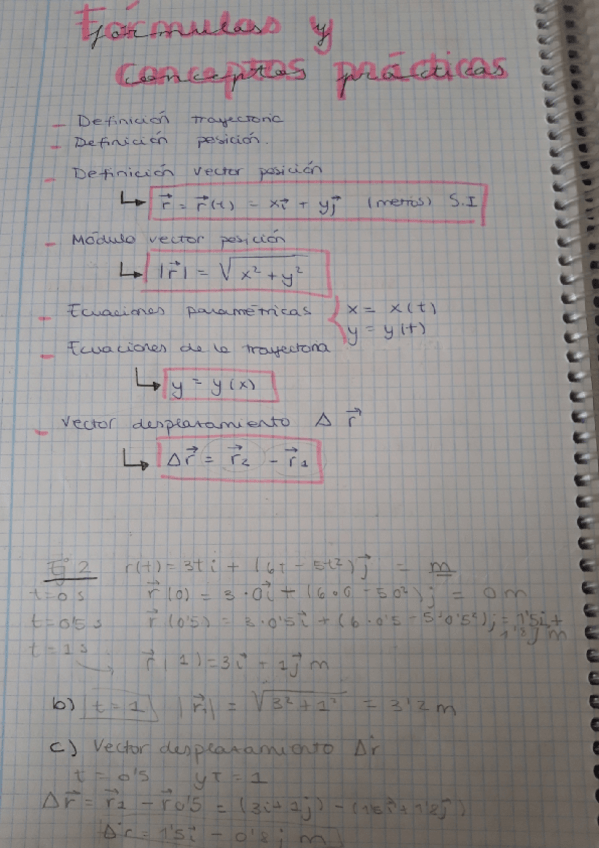 Fórmulas y
conceptos prácticos
- Definición trayectoria
- Definición posición.
- Definición vector posición
↳ r⃗ = r⃗(t) = xi⃗ + yj⃗ (metros) S.I
- Módulo vector posición
↳ |r⃗| = √x² + y²
- Ecuaciones paramétricas { x = x(t)
y = y(t)
- Ecuaciones de la trayectoria
↳ y = y(x)
- Vector desplazamiento Δ r⃗
↳ Δr⃗ = r⃗₂ - r⃗₁
2 r(t) = 3ti + (6t - 5t²)j⃗ = m
t=0s r⃗(0) = 3·0i⃗ + (6·0 - 5·0²)j = 0m
t=0'5s r⃗(0'5) = 3·0'5i⃗ + (6·0'5 - 5·0'5²)j = 1'5i +
t=1s 1'8j m
→ r⃗(1) = 3i⃗ + 1j⃗ m
b) t = 1 |r⃗₁| = √3² + 1² = 3'2 m
c) Vector desplazamiento Δr
t = 0'5 y t = 1
Δr⃗ = r⃗1 - r⃗0'5 = (3i + 1j) - (1'5i⃗ + 1'8j⃗)
Δr = 1'5i - 0'8j m